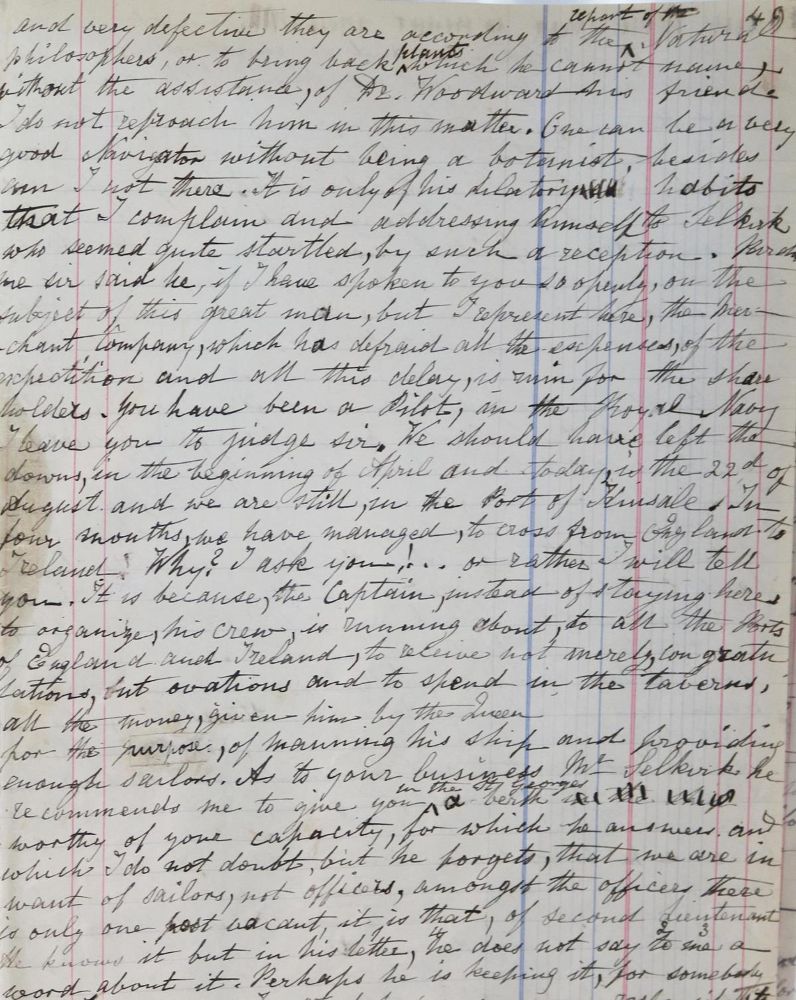 report of the 49
and very defective they are according to the Natural
philosophers, or to bring back plants which he cannot name,
without the assistance, of Dr. Woodward his friend
I do not reproach him in this matter. One can be a very
good Navigator without being a botanist, besides
am I not there. It is only of his dilatory habits
that I complain and addressing himself to Selkirk
who seemed quite startled, by such a reception. Pardon
me sir said he, if I have spoken to you so openly, on the
subject of this great man, but I represent here, the Mer-
-chant, Company, which has defraid all the expenses, of the
expedition and all this delay, is ruin for the share
holders. You have been a Pilot, in the Royal Navy
I leave you to judge sir. We should have left the
downs, in the beginning of April and today, is the 22d of
August and we are still, in the Port of Kinsale. In
four months, we have managed, to cross from England to
Ireland! Why? I ask you!... or rather I will tell
you. It is because, the Captain, instead of staying here
to organize, his crew, is running about, to all the Ports
of England and Ireland, to receive not merely, congratu
lations, but ovations and to spend in the taverns,
all the money, given him by the Queen
for the purpose, of manning his ship and providing
enough sailors. As to your business Mr Selkirk he
in the St George
recommends me to give you a berth
worthy of your capacity, for which he answers and
which I do not doubt, but he forgets, that we are in
want of sailors, not officers, amongst the officers there
is only one post vacant, it, is that, of second Lieutenant
He knows it but in his letter, he does not say to me a
word about it. Perhaps he is keeping it, for somebody